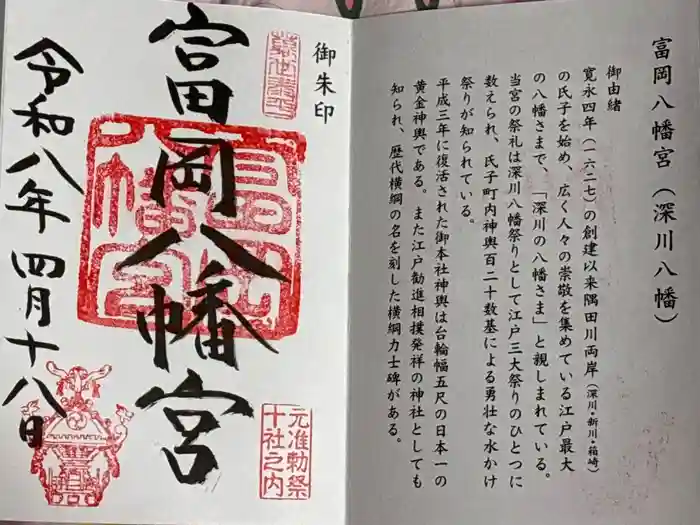 富岡八幡宮(深川八幡)
御由緒
寛永四年(一六二七)の創建以来隅田川両岸(深川・新川・箱崎)
の氏子を始め、広く人々の崇敬を集めている江戸最大
の八幡さまで、「深川の八幡さま」と親しまれている。
当宮の祭礼は深川八幡祭りとして江戸三大祭りのひとつに
数えられ、氏子町内神輿百二十数基による勇壮な水かけ
祭りが知られている。
平成三年に復活された御本社神輿は台輪幅五尺の日本一の
黄金神輿である。また江戸勧進相撲発祥の神社としても
知られ、歴代横綱の名を刻した横綱力士碑がある。
御朱印
元准勅祭
十社之内
富岡八幡宮
令和八年四月十八日